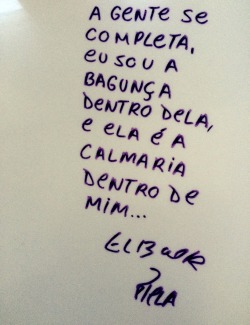 A GENTE SE
COMPLETA,
EU SOU A
BAGUNÇA
DENTRO DELA,
E ELA É A
CALMARIA
DENTRO DE
MIM...